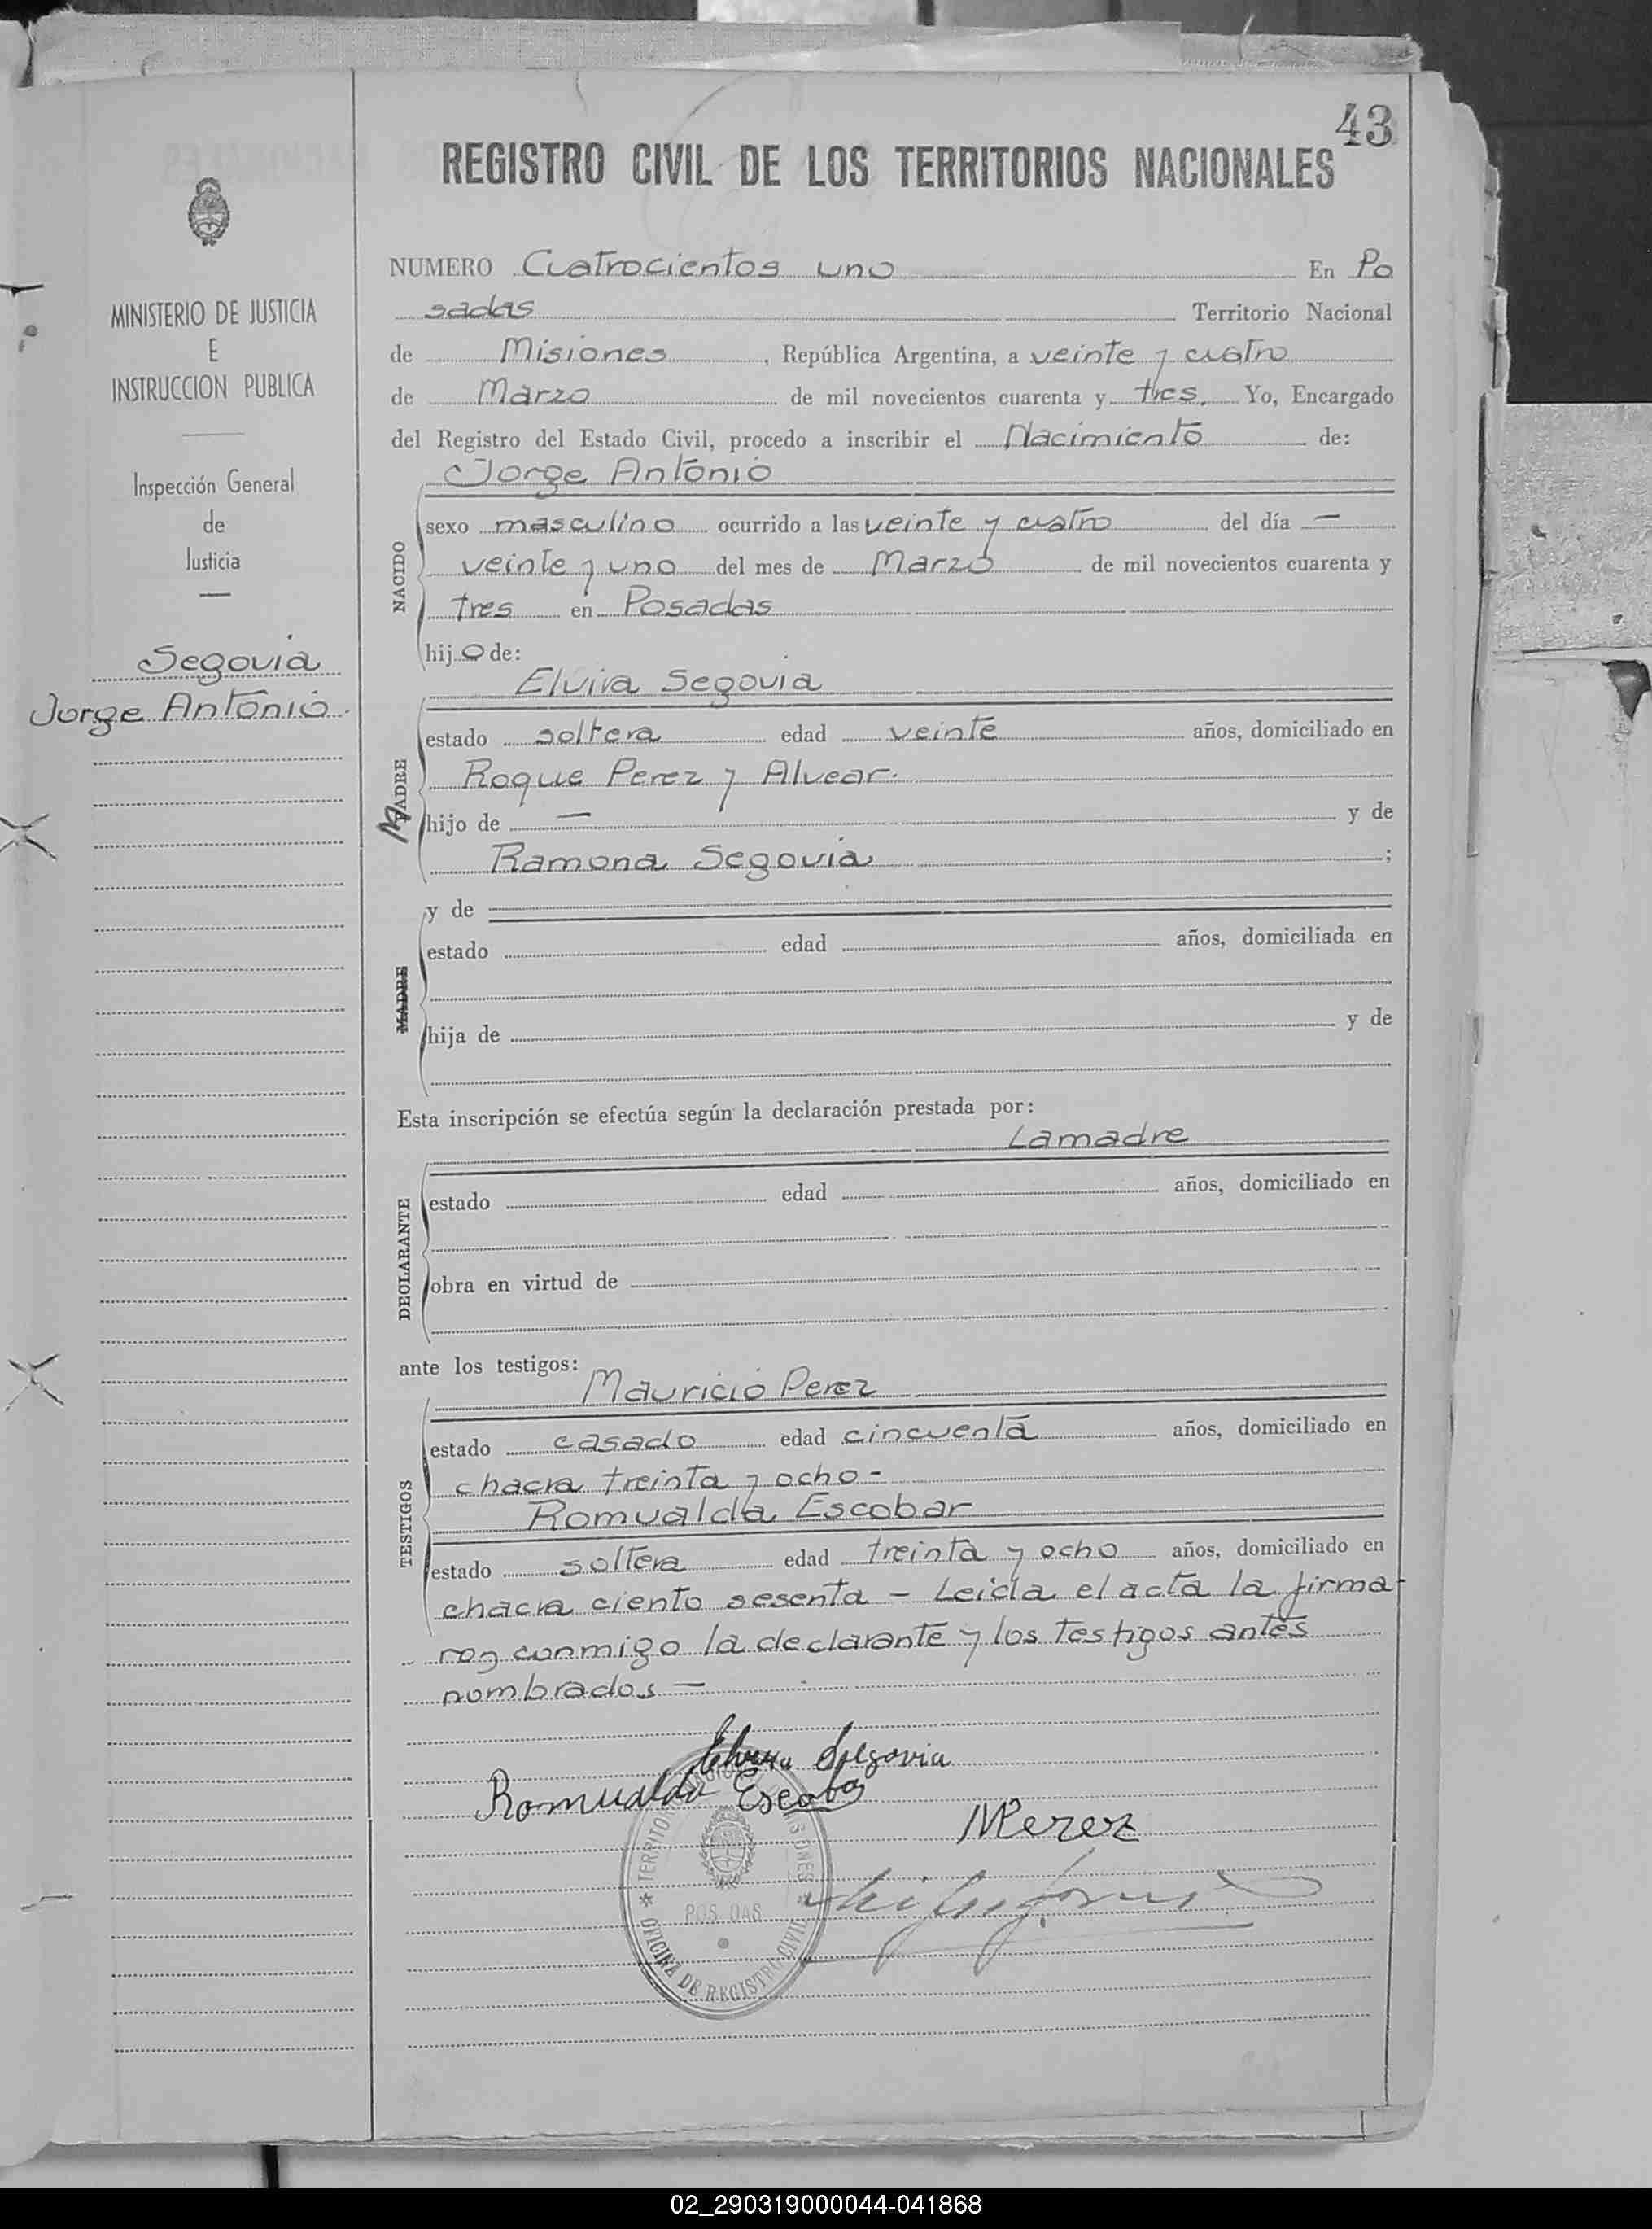 43
REGISTRO CIVIL DE LOS TERRITORIOS NACIONALES
MINISTERIO DE JUSTICIA
E
INSTRUCCION PUBLICA
Inspección General
de
Justicia
Segovia
Jorge Antonio.
NUMERO Cuatrocientos uno En Po
sadas Territorio Nacional
de Misiones, República Argentina, a veinte y cuatro
de Marzo de mil novecientos cuarenta y tres. Yo, Encargado
del Registro del Estado Civil, procedo a inscribir el Nacimiento de:
Jorge Antonio
NACIDO
sexo masculino ocurrido a las veinte y cuatro del día —
veinte y uno del mes de Marzo de mil novecientos cuarenta y
tres en Posadas
hijo de:
Elvira Segovia
MADRE
estado soltera edad veinte años, domiciliado en
Roque Perez y Alvear.
hijo de — y de
Ramona Segovia ;
y de
MADRE
estado edad años, domiciliada en
hija de y de
Esta inscripción se efectúa según la declaración prestada por:
La madre
DECLARANTE
estado edad años, domiciliado en
obra en virtud de
ante los testigos:
Mauricio Perez
TESTIGOS
estado casado edad cincuenta años, domiciliado en
chacra treinta y ocho -
Romualda Escobar
estado soltera edad treinta y ocho años, domiciliado en
chacra ciento sesenta - Leida el acta la firma-
ron conmigo la declarante y los testigos antes
nombrados —
Elvira Segovia
Romualda Escobar
MPerez
TERRITORIO MISIONES
POSADAS
OFICINA DE REGISTRO CIVIL
02_290319000044-041868